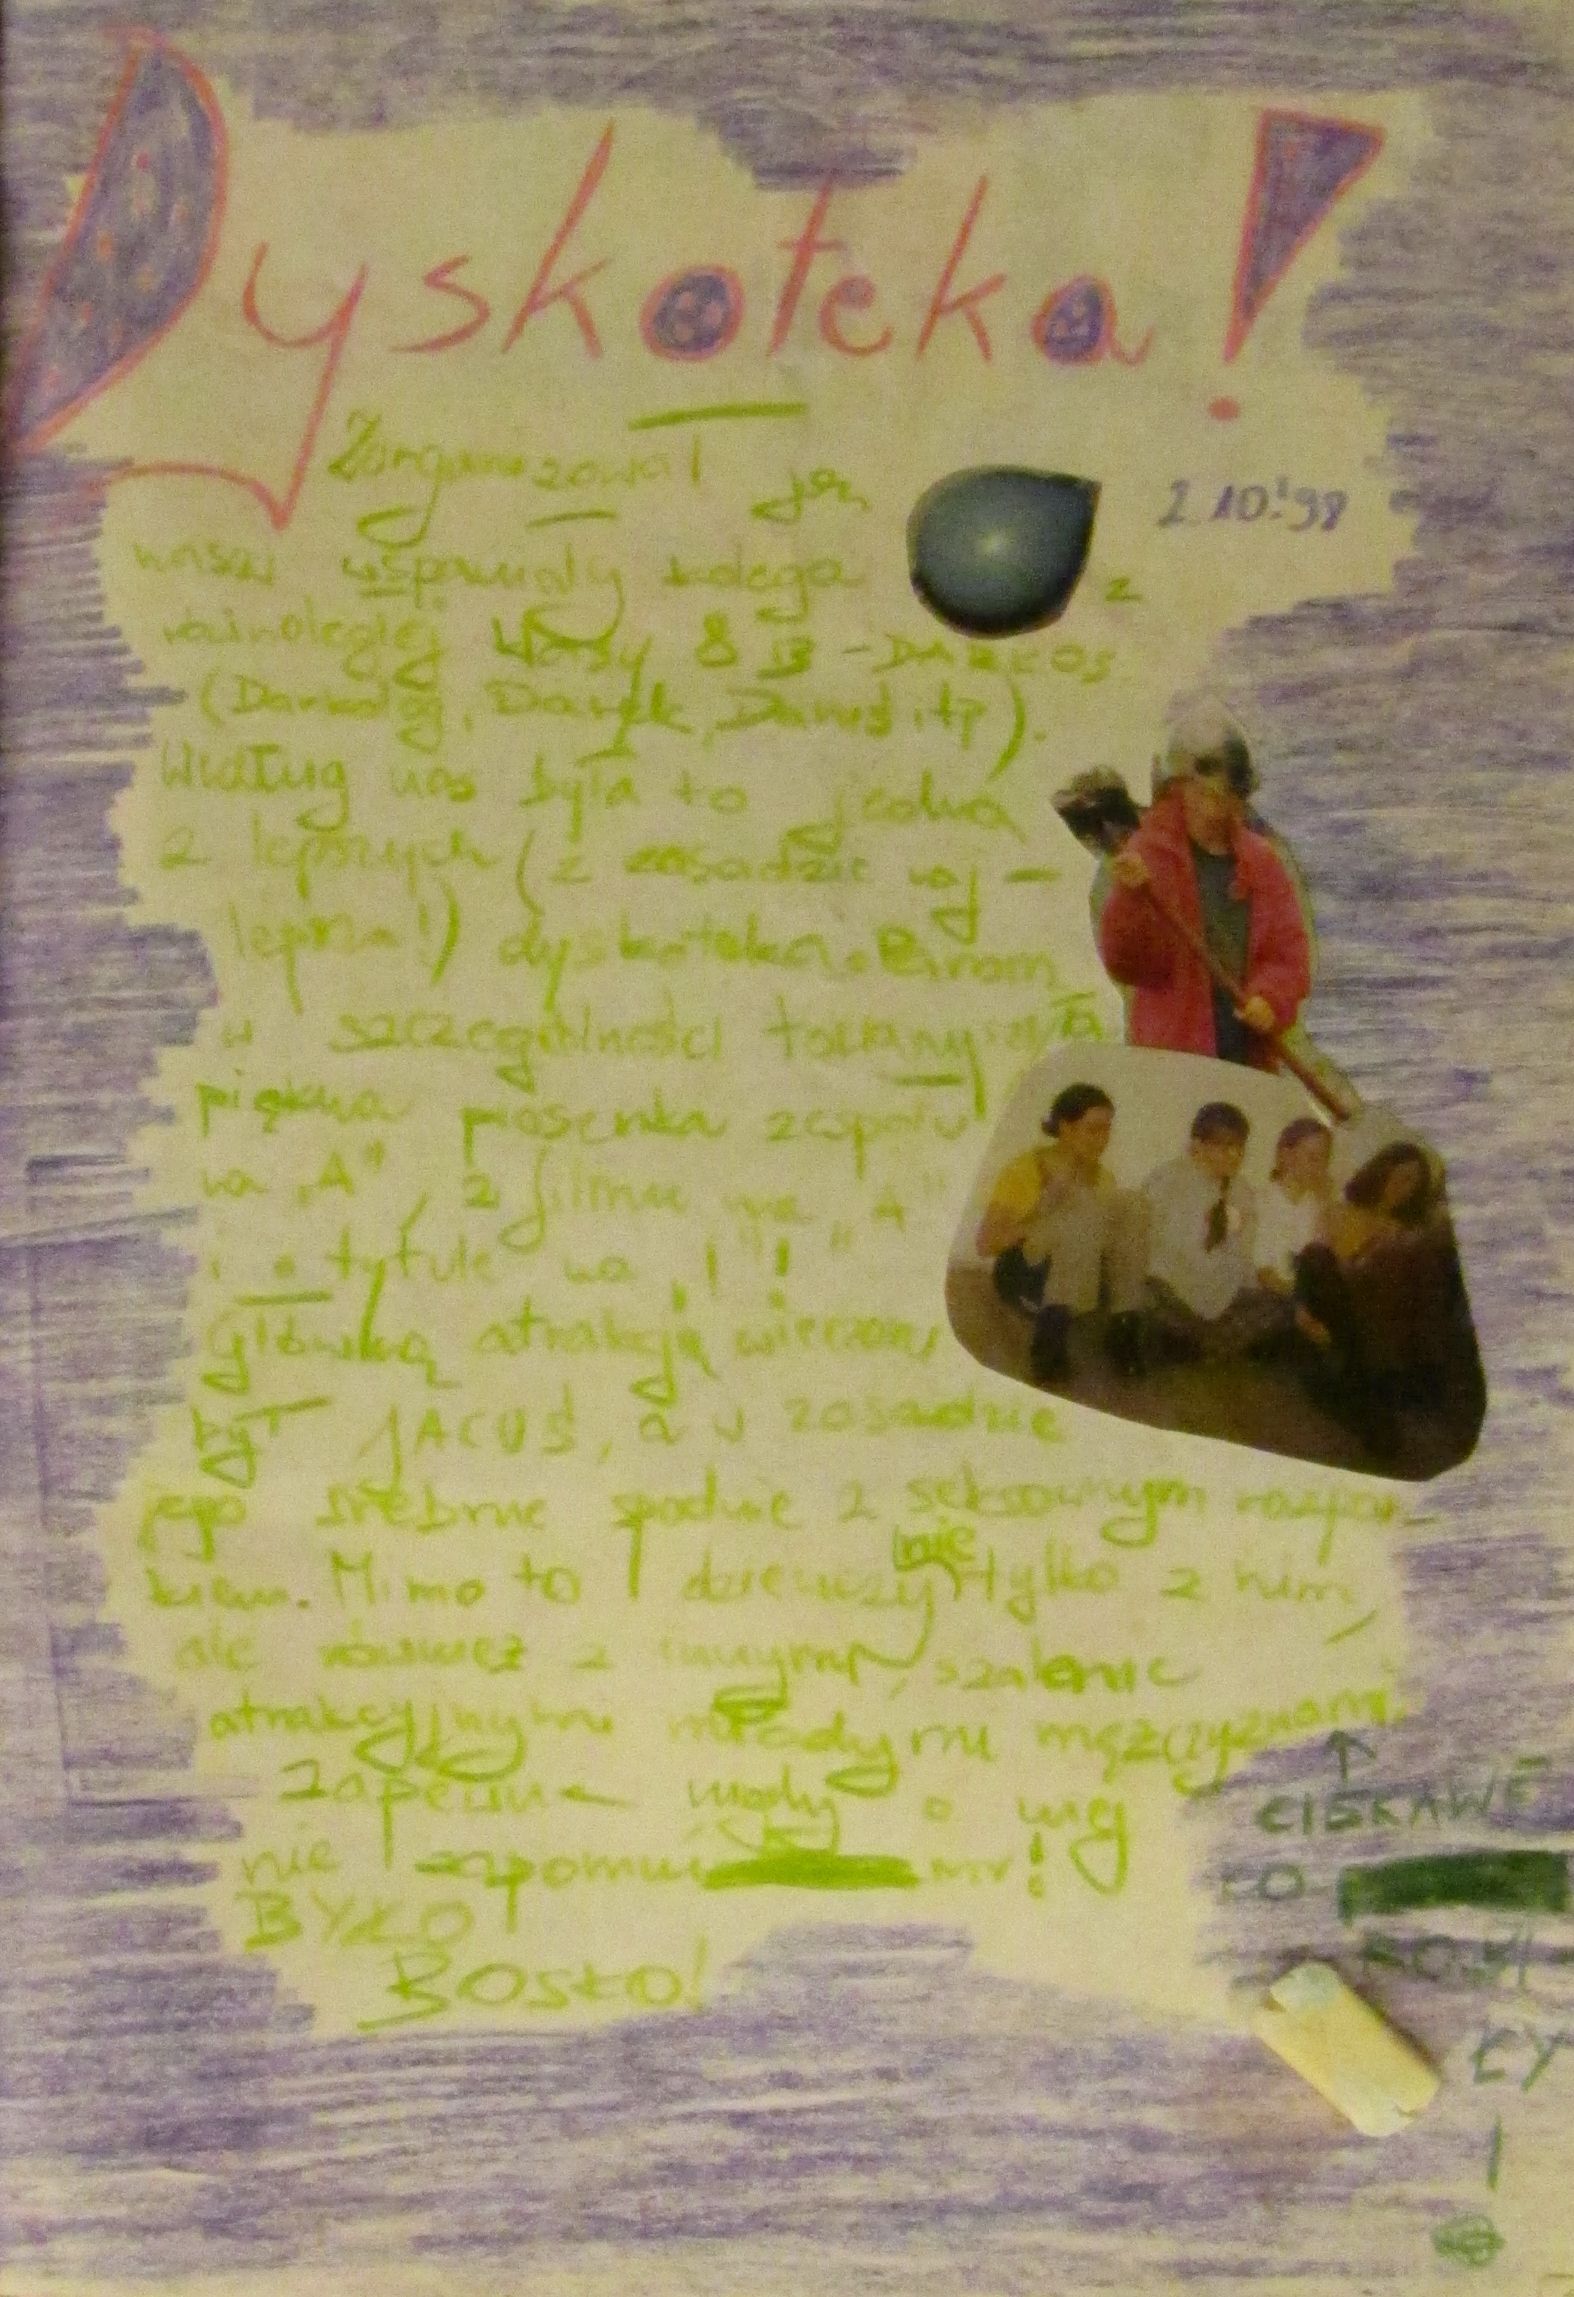 Dyskoteka!
Zorganizował ją
2.10!98
nasz wspaniały kolega z
równoległej klasy 8 B - DARKOS
(Dark, Darek, Daruś itp).
Według nas była to jedna
z lepszych (z zasadzie naj -
lepsza!) dyskoteka.
w szczególności towarzyszyła
piękna piosenka zespołu
na "A", z filmu na "A"
i o tytule na "I"!
Główną atrakcją wieczoru
był JACUŚ, a w zasadzie
jego srebrne spodnie z seksownym rozpor-
kiem. Mimo to dziewczyny nie tylko z nim,
ale również z innymi, szalenie
atrakcyjnymi młodymi mężczyznami.
Zapewne nigdy o niej
nie zapomni
BYŁO
BOSKO!
CIEKAWE
KO
ŁY